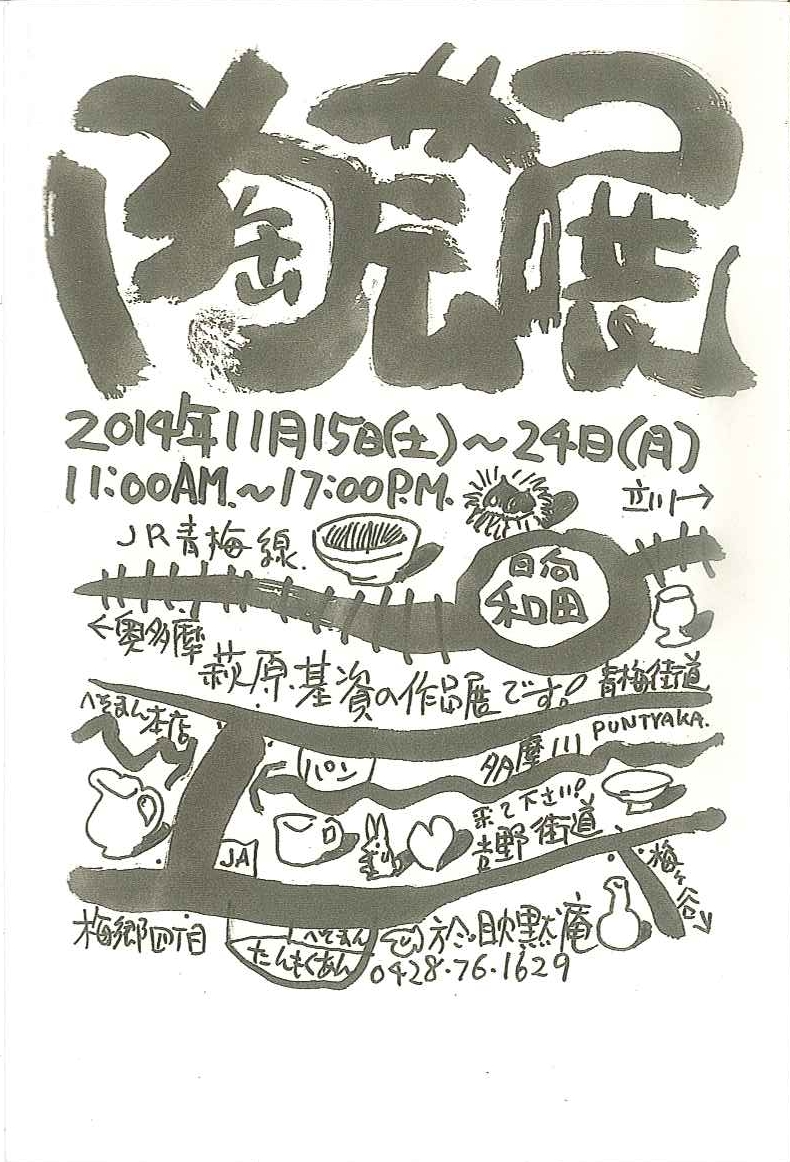 陶芸展
2014年11月15日(土)～24日(月)
11:00AM.～17:00P.M.
立川→
JR青梅線.
日向
和田
←奥多摩
萩原.基資の作品展です!
青梅街道
へそまん本店
PUNTYAKA.
多摩川
パン
来て下さい!
吉野街道
JA
梅ヶ谷
梅郷四丁目
へそまん
たんもくあん
於.耽黙庵
0428.76.1629